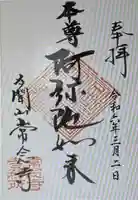 奉拝
令和六年三月二日
本尊
阿弥陀如来
常念寺